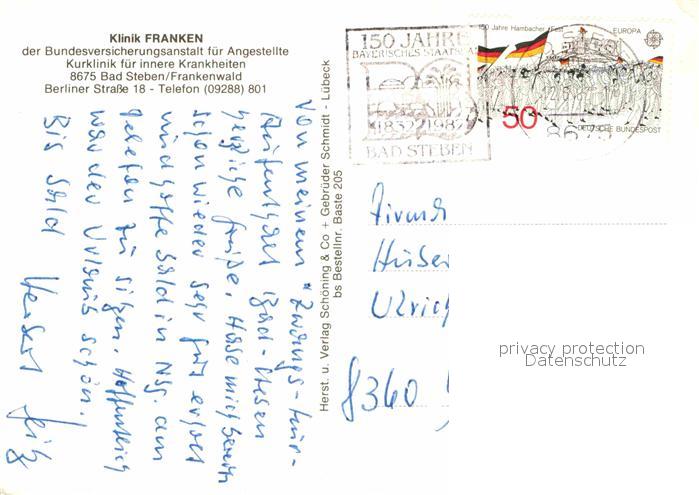 Klinik FRANKEN
der Bundesversicherungsanstalt für Angestellte
Kurklinik für innere Krankheiten
8675 Bad Steben/Frankenwald
Berliner Straße 18 - Telefon (09288) 801
Von meinem "Zwangs-Kur-
Aufenthalt" Bad-Steben
herzliche Grüße. Habe mich bereits
schon wieder sehr gut erholt
und hoffe bald in Nbg. am
Telefon zu sitzen. Hoffentlich
war der Urlaub schön.
Bis bald
Herbert
Herst. u. Verlag Schöning & Co + Gebrüder Schmidt - Lübeck
bs Bestellnr. Baste 205
150 JAHRE
BAYERISCHES STAATSBAD
1832 1982
BAD STEBEN
150 Jahre Hambacher Fest
EUROPA
50
DEUTSCHE BUNDESPOST
8675
Firma
Huber
Ulrich
8360
privacy protection
Datenschutz